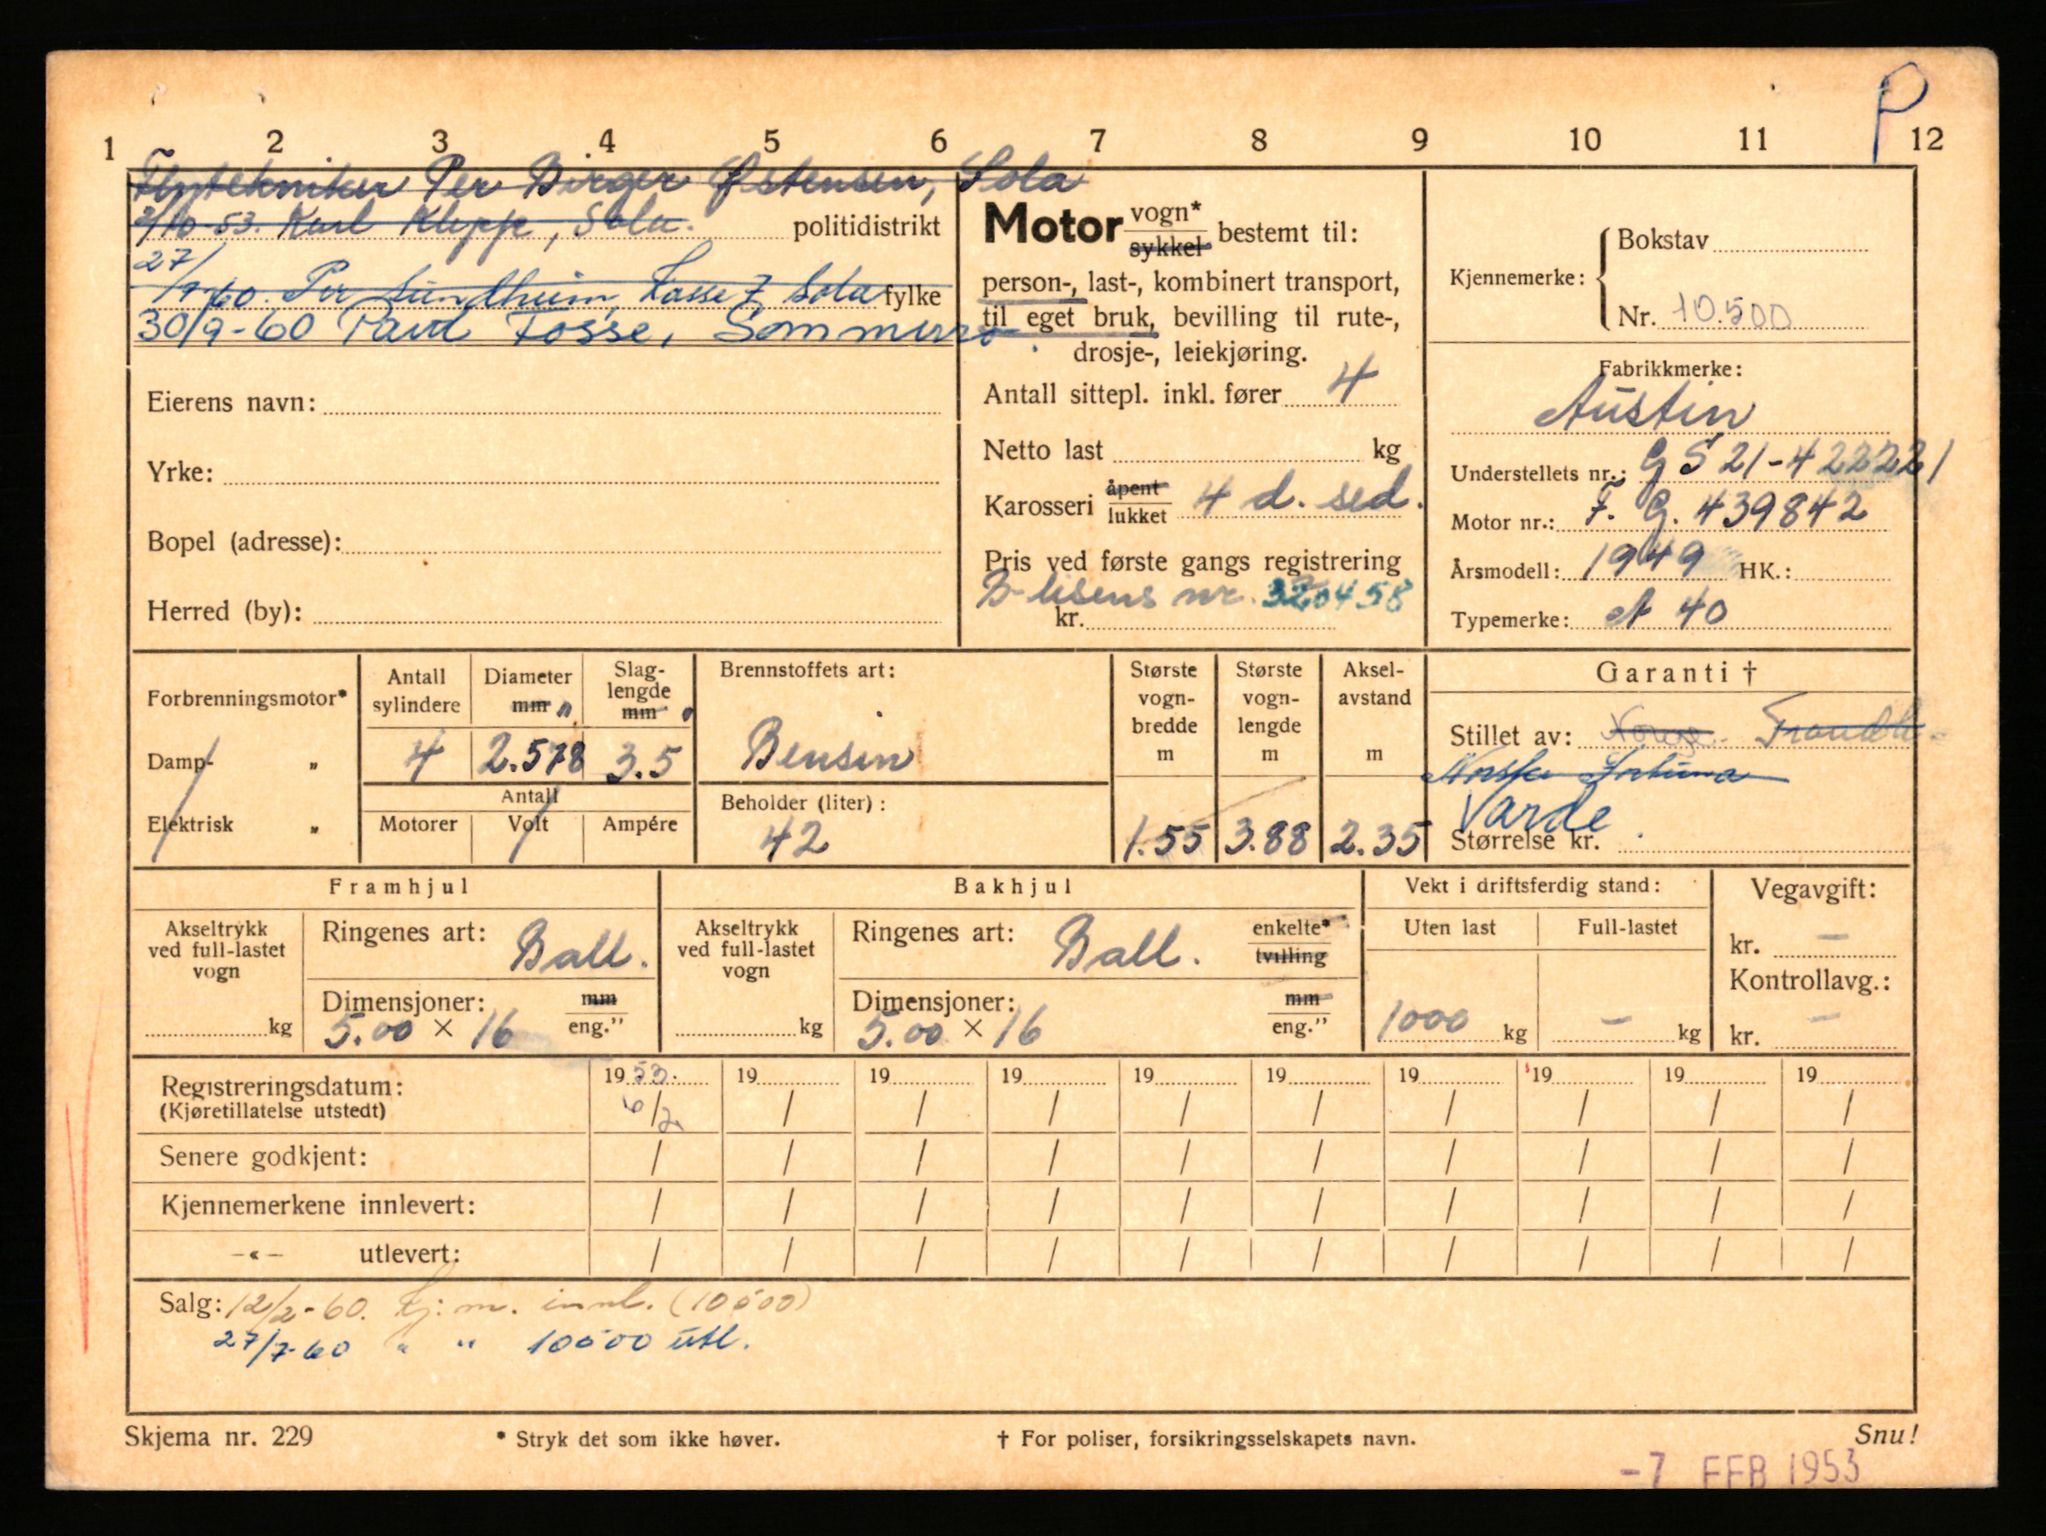 P
1 2 3 4 5 6 7 8 9 10 11 12
Flytekniker Per Birger Østensen, Sola
3/10-53. Karl Kleppe, Sola. politidistrikt
27/
/7-60. Per Sundheim, Sola fylke
30/9-60 Fosse, Sømmevn
Eierens navn:
Yrke:
Bopel (adresse):
Herred (by):
Motor vogn* sykkel bestemt til:
person-, last-, kombinert transport,
til eget bruk, bevilling til rute-,
drosje-, leiekjøring.
Antall sittepl. inkl. fører 4
Netto last kg
Karosseri åpent lukket 4 d. sed.
Pris ved første gangs registrering
B-lisens nr. 320458
kr.
Kjennemerke: Bokstav
Nr. 10.500
Fabrikkmerke:
Austin
Understellets nr.: G S 21-422221
Motor nr.: F. G. 439842
Årsmodell: 1949 HK.:
Typemerke: A 40
Forbrenningsmotor*
Damp- „
Elektrisk „
Antall sylindere
4
Diameter mm "
2.578
Slag-
lengde
mm "
3.5
Antall
Motorer Volt Ampére
Brennstoffets art:
Bensin
Beholder (liter):
42
Største
vogn-
bredde
m
1.55
Største
vogn-
lengde
m
3.88
Aksel-
avstand
m
2.35
Garanti †
Stillet av: Norge.
Norske Fortuna
Varde
Størrelse kr.
Framhjul
Akseltrykk
ved full-lastet
vogn
kg
Ringenes art: Ball.
Dimensjoner: mm
5.00 × 16 eng.”
Bakhjul
Akseltrykk
ved full-lastet
vogn
kg
Ringenes art: Ball. enkelte* tvilling
Dimensjoner: mm
5.00 × 16 eng.”
Vekt i driftsferdig stand:
Uten last Full-lastet
1000 kg — kg
Vegavgift:
kr. —
Kontrollavg.:
kr. —
Registreringsdatum: 1953. 19 19 19 19 19 19 19 19 19
(Kjøretillatelse utstedt) 6/2 / / / / / / / / /
Senere godkjent: / / / / / / / / / /
Kjennemerkene innlevert: / / / / / / / / / /
—«— utlevert: / / / / / / / / / /
Salg: 12/2-60. Kj.m. innl. (10500)
27/7-60 " " 10500 utl.
Skjema nr. 229 * Stryk det som ikke høver. † For poliser, forsikringsselskapets navn. Snu!
-7 FEB 1953